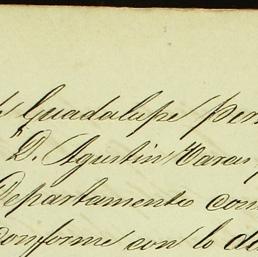 Guadalupe per
D. Agustin Varas
Departamento con
conforme con lo d